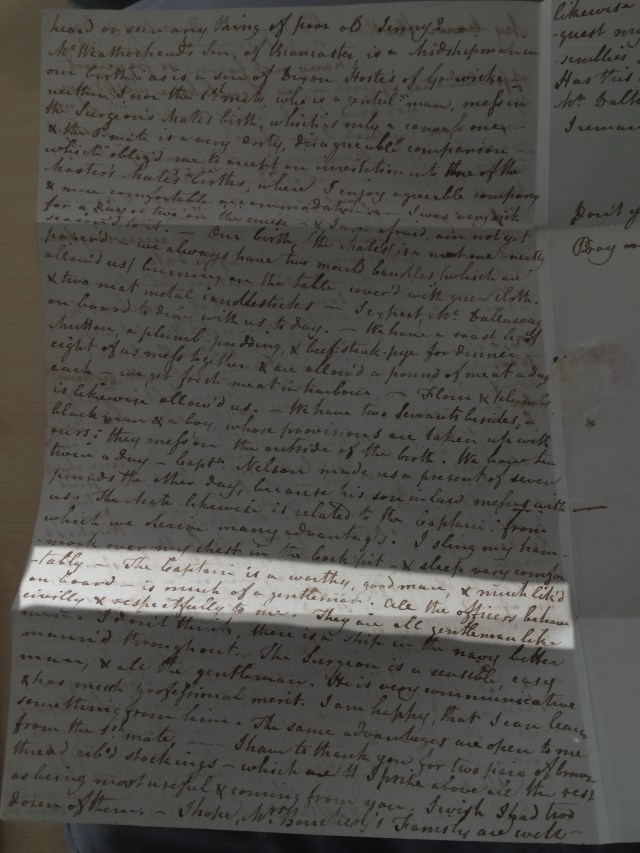 heard or seen any thing of poor old Jenny?
Mr Weatherhead's Son, of Brancaster is a Midshipman in
our birth: as is a son of Dixon Hostes of Godwicke -
neither I nor the 1st mate, who is a gentlen man, mess in
the Surgeon's Mates birth, which is only a canvass one -
& the 2d mate is a very dirty, disagreeable companion -
which oblig'd me to accept an invitation into one of the
Master's Mates' births, where I enjoy agreeable company
& more comfortable accommodations - I was very sick
for a day or two in the cruise - & I am afraid, am not yet
season'd to it. - Our birth (the Mates) is a neat one - neatly
paper'd - we always have two mould candles (which are
allow'd us) burning on the table cover'd with green cloth.
& two neat metal candlesticks - I expect Mr Dallaway
on board to dine with us to day. - We have a roast leg of
Mutton, a plumb-pudding, & beefsteak-pye for dinner -
eight of us mess together & are allow'd a pound of meat a day
each - we get fresh meat in harbour - Flour &
is likewise allow'd us. - We have two Servants besides, a
black man & a boy, whose provisions are taken up with
ours: they mess on the outside of the birth. We have tea
twice a day - Captn Nelson made us a present of seven
pounds the other day, because his son in law messes with
us. The Mate likewise is related to the Captain: from
which we derive many advantages. I sling my ham-
-mock over my chest in the Cock pit - & sleep very comfor
-tably - The Captain is a worthy, good man, & much lik'd
on board - is much of a gentleman. All the officers behave
civilly & respectfully to me. They are all gentlemen like
men. I don't think, there is a ship in the navy better
mann'd throughout. The Surgeon is a sensible easy
man, & all the gentleman. He is very communicative
& has much professional merit. I am happy, that I can learn
something from him. The same advantages are open to me
from the 1st mate. - I have to thank you for two pair of brown
thread rib'd stockings - which I prize above all the rest
as being most useful & coming from you. I wish I had two
dozen of them. - I hope, Mrs Family are well -
likewise
quest
Has this
Mr Dall
I remain
Don't y
Pray